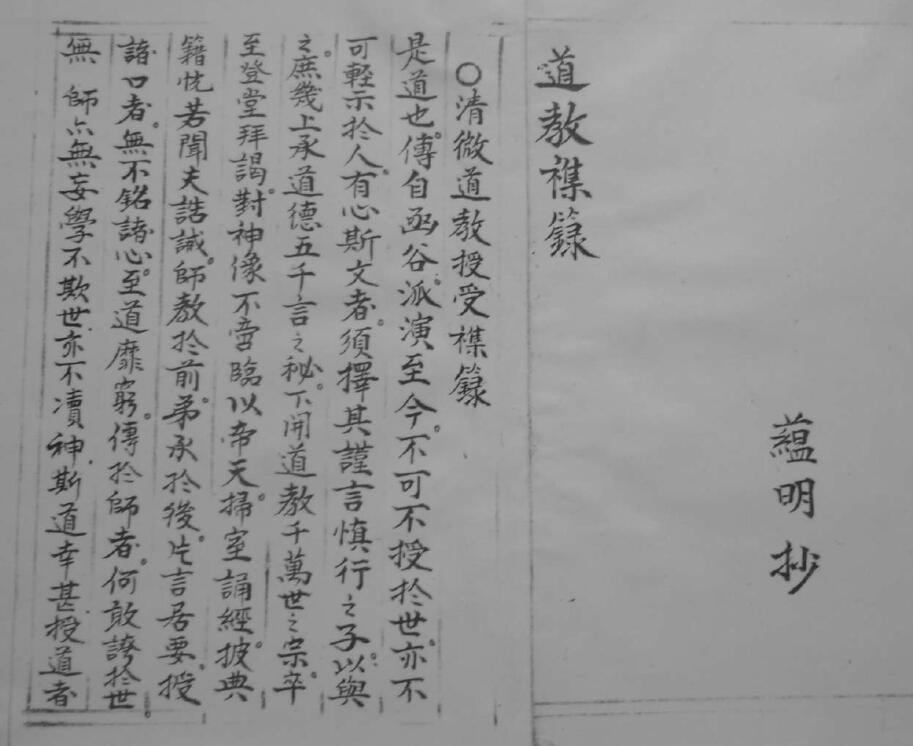 蘊明抄
道教襍籙
〇清微道教授受襍籙
是道也。傳自函谷。派演至今。不可不授於世。亦不
可輕示於人。有心斯文者。須擇其謹言慎行之子。以與
之。庶幾上承道德五千言之秘。下開道教千萬世之宗。卒
至登堂拜謁。對神像不啻臨以帝天。掃室誦經。披典
籍恍若聞夫誥誡。師教於前。弟承於後。片言居要。授
諸口者。無不銘諸心。至道靡窮。傳於師者。何敢誇於世。
無師亦無妄學不欺世亦不瀆神斯道幸甚授道者